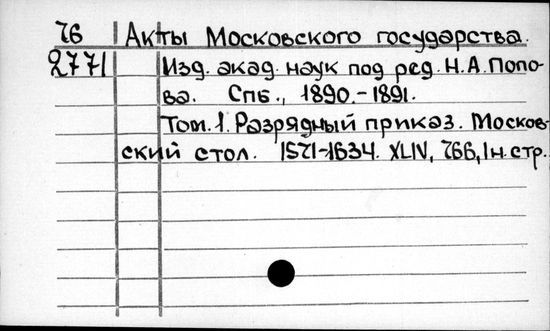 76 Акты Московского государства.
2771 Изд. акад. наук под ред. Н.А.Попо-
ва. Спб., 1890.-1891.
Том.1. Разрядный приказ. Москов-
ский стол. 1571-1634. XLIV, 766, 1н.стр.